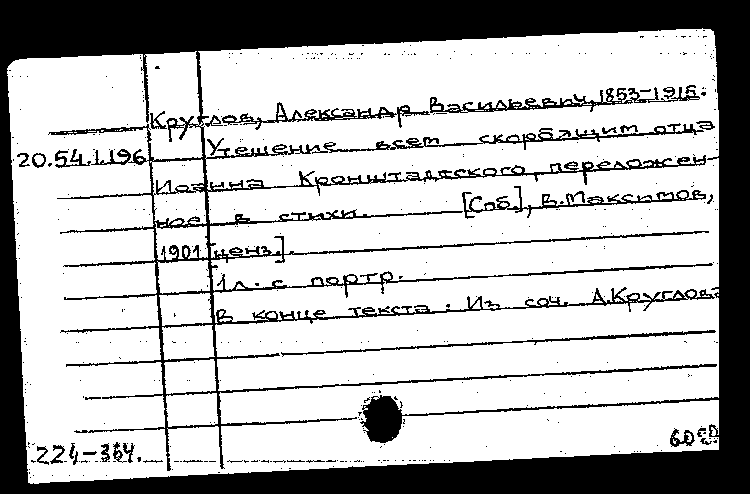 Круглов, Александр Васильевич, 1853-1915.
20.54.1.196. Утешение всем скорбящим отца
Иоанна Кронштадтского, переложен-
ное в стихи. [Спб.], В. Максимов,
1901 [ценз.].
1 л. с портр.
В конце текста: Из соч. А. Круглова
224-364.